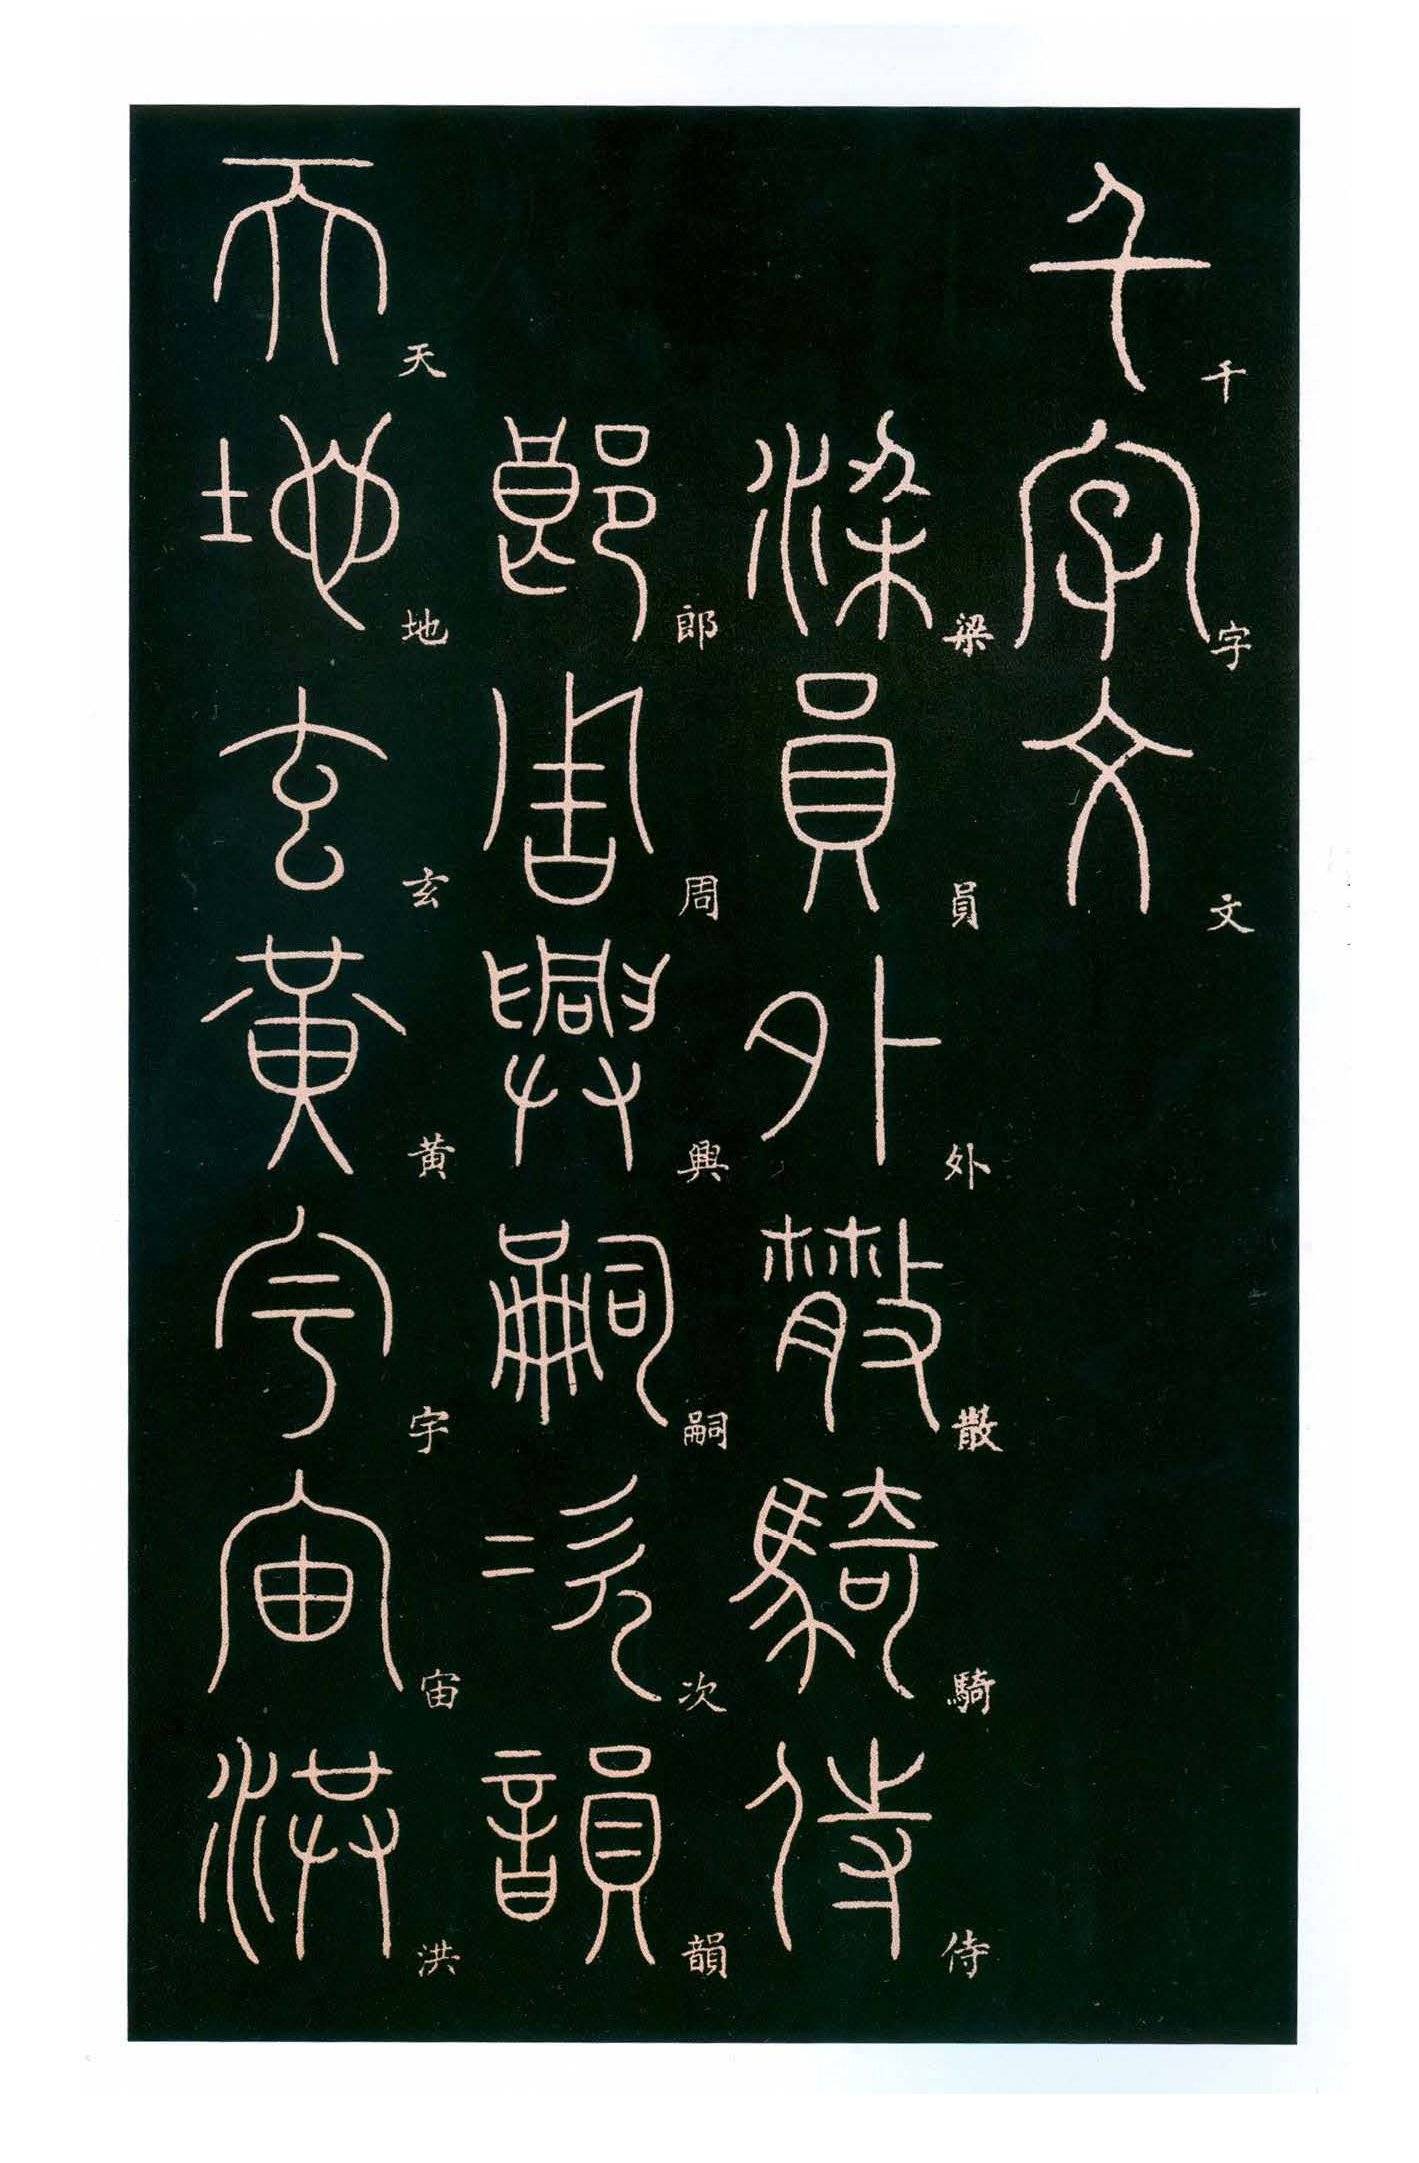 千字文
梁員外散騎侍
郎周興嗣次韻
天地玄黄宇宙洪